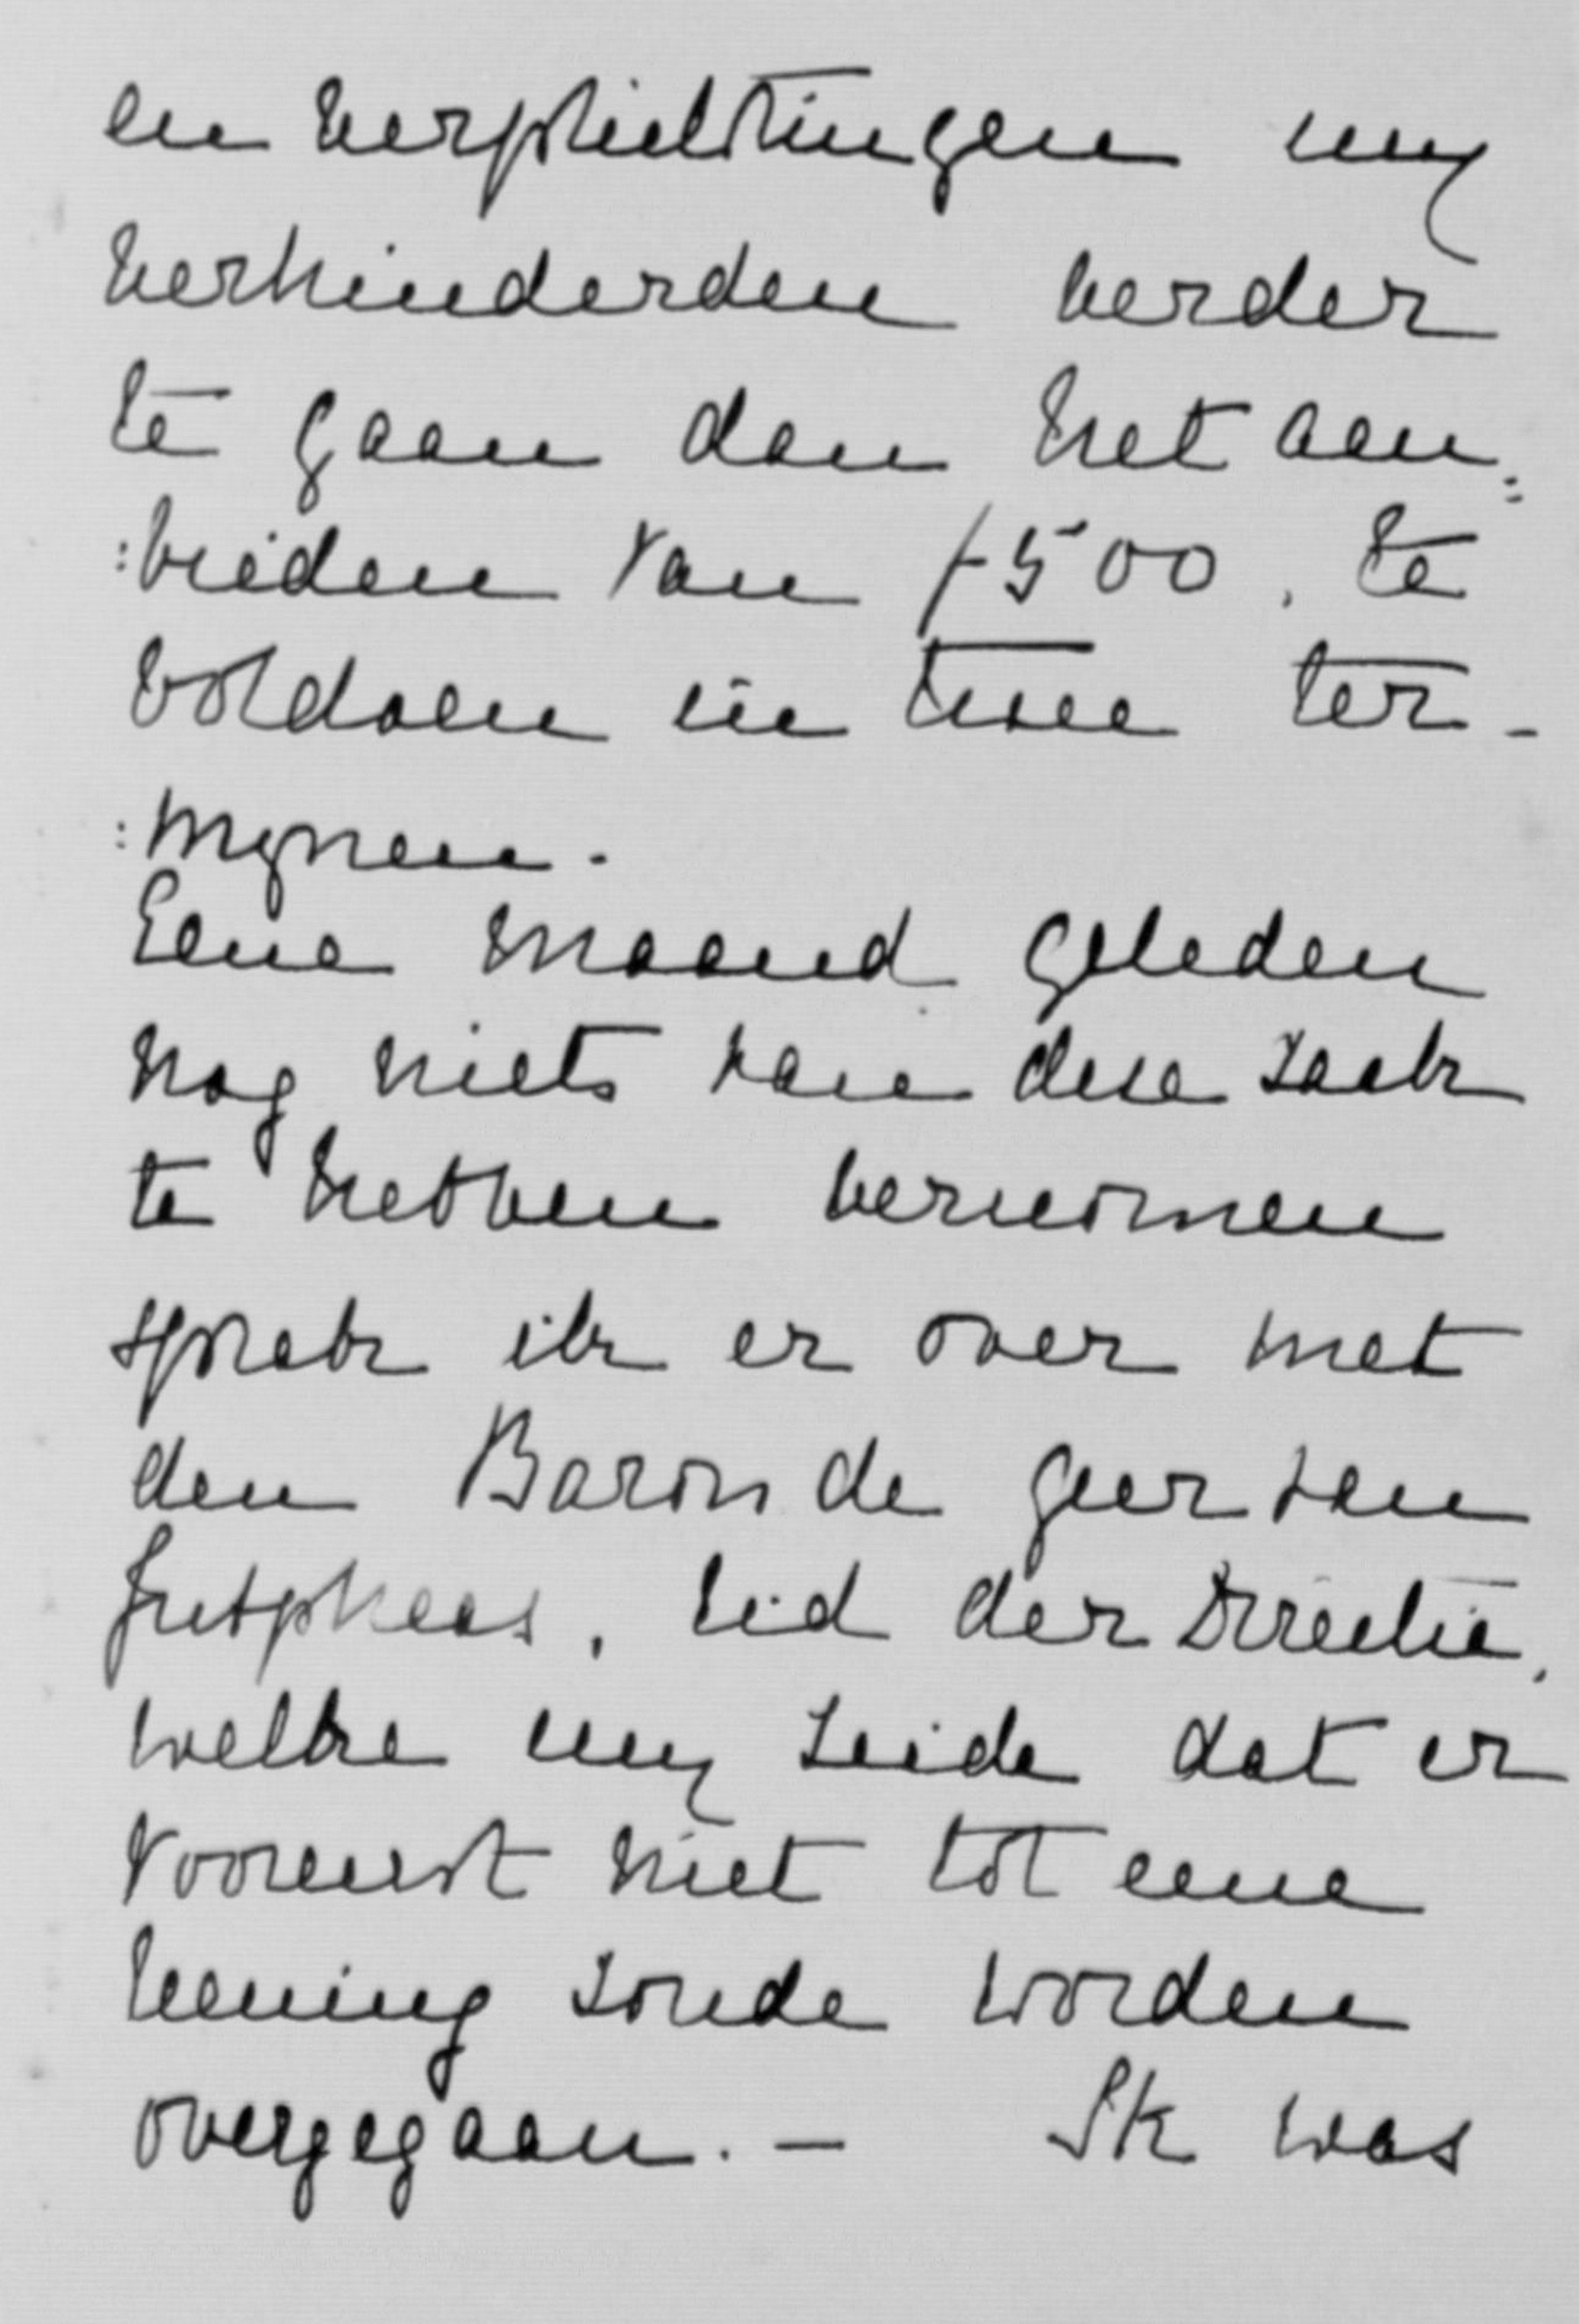 en verplichtingen my
verhinderden verder
te gaan dan het aan=
:bieden van ƒ500, te
voldoen in twee ter-
:mynen.
Eene maand geleden
nog niets van deze zaak
te hebben vernomen
sprak ik er over met
den Baron de Geer van
Jutphaas, lid der Directie,
welke my zeide dat er
vooreerst niet tot eene
leening zoude worden
overgegaan. — Ik was